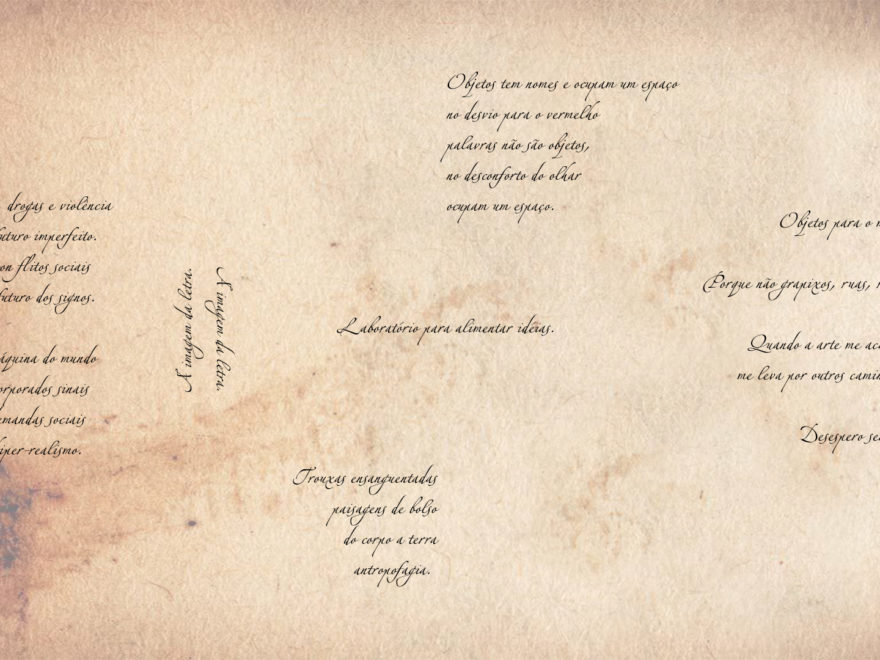 Objetos tem nomes e ocupam um espaço
no desvio para o vermelho
palavras não são objetos,
no desconforto do olhar
ocupam um espaço.
drogas e violência
futuro imperfeito.
flitos sociais
futuro dos signos.
áquina do mundo
orporados sinais
mandas sociais
iper-realismo.
A imagem da letra.
A imagem da letra.
Laboratório para alimentar ideias.
Trouxas ensanguentadas
paisagens de bolso
do corpo a terra
antropofagia.
Objetos para o
Porque não grapixos, ruas,
Quando a arte me
me leva por outros
Desespero